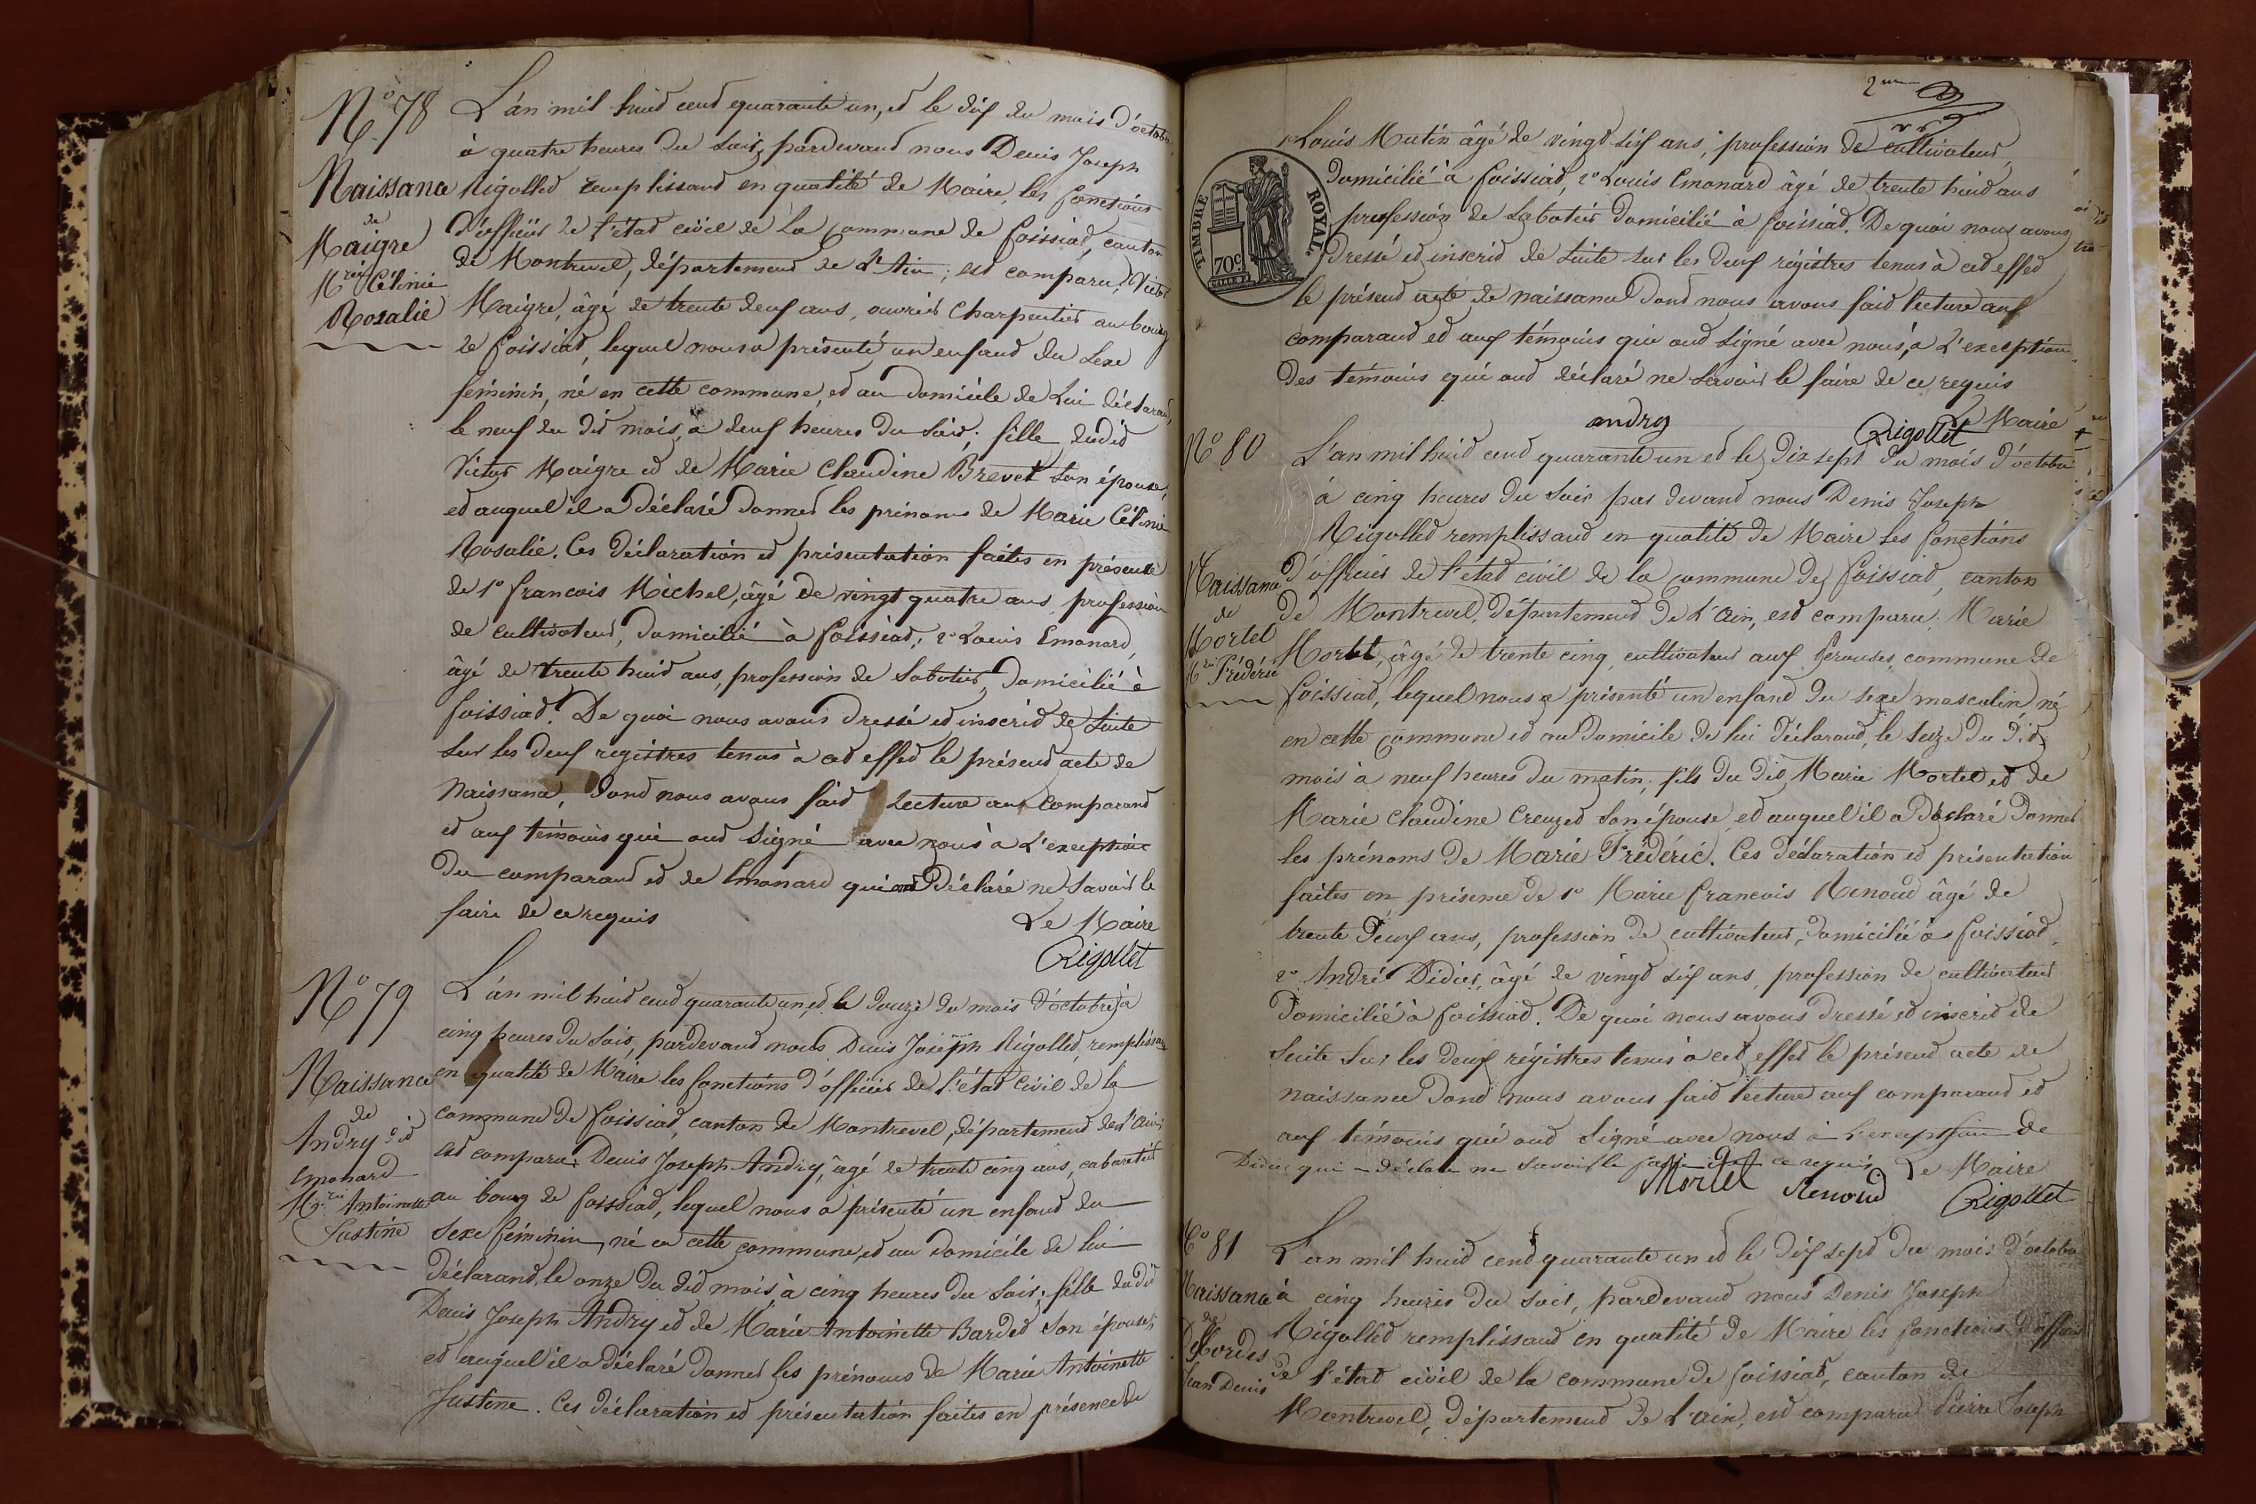 No 78
Naissance
de
Maigre
Mrie Célinie
Rosalie
L'an mil huit cent quarante un, et le dix du mois d'octobre
à quatre heures du soir, pardevant nous Denis Joseph
Rigollet remplissant en qualité de Maire, les fonctions
d'officier de l'état civil de la commune de foissiat, canton
de Montrevel, département de L'Ain; est comparu, Victor
Maigre, âgé de trente deux ans, ouvrier Charpentier au bourg
de foissiat, lequel nous a présenté un enfant du sexe
féminin, né en cette commune, et au domicile de Lui déclarant,
le neuf du dit mois, à deux heures du soir; fille dudit
Victor Maigre et de Marie Claudine Brevet son épouse,
et auquel il a déclaré donner les prénoms de Marie Célinie
Rosalie. Ces déclaration et présentation faites en présence
de 1o francois Michel, âgé de vingt quatre ans, profession
de cultivateur, domicilié à foissiat, 2o Louis Emonard,
âgé de trente huit ans, profession de sabotier, domicilié à
foissiat. De quoi nous avons dressé et inscrit de suite
sur les deux registres tenus à cet effet le présent acte de
Naissance, dont nous avons fait lecture aux comparant
et aux témoins qui ont signé avec nous à L'exception
du comparant et de Emonard qui ont déclaré ne savoir le
faire de ce requis
Le Maire
Rigollet
No 79
Naissance
de
Andry dit
Emonard
Mrie Antoinette
Justine
L'an mil huit cent quarante un, et le douze du mois d'octobre, à
cinq heures du soir, pardevant nous Denis Joseph Rigollet, remplissant
en qualité de Maire les fonctions d'officier de l'état civil de la
commune de foissiat, canton de Montrevel, département de l'Ain;
est comparu Denis Joseph Andry, âgé de trente cinq ans, cabaretier
au bourg de foissiat, lequel nous a présenté un enfant du
sexe féminin, né en cette commune, et au domicile de lui
déclarant, le onze du dit mois à cinq heures du soir; fille dudit
Denis Joseph Andry et de Marie Antoinette Bardet son épouse,
et auquel il a déclaré donner les prénoms de Marie Antoinette
Justine. Ces déclaration et présentation faites en présence de
2me
1o Louis Mutin âgé de vingt six ans, profession de cultivateur,
domicilié à foissiat, 2o Louis Emonard âgé de trente huit ans
profession de sabotier domicilié à foissiat. De quoi nous avons
dressé et inscrit de suite sur les deux régistres tenus à cet effet
le présent acte de naissance dont nous avons fait lecture aux
comparant et aux témoins qui ont signé avec nous, à L'exception
des témoins qui ont déclaré ne servoir le faire de ce requis
TIMBRE ROYAL
70c.
andry
Le Maire
Rigollet
No 80
Naissance
de
Mortel
Mrie Frédéric
L'an mil huit cent quarante un et le dix sept du mois d'octobre
à cinq heures du soir par devant nous Denis Joseph
Rigollet remplissant en qualité de Maire les fonctions
d'officier de l'état civil de la commune de foissiat, canton
de Montrevel, département de L'Ain, est comparu Marie
Mortel, âgé de trente cinq, cultivateur aux Perouses, commune de
foissiat, lequel nous a présenté un enfant du sexe masculin né
en cette commune et au domicile de lui déclarant, le seize du dit
mois à neuf heures du matin; fils du dit Marie Mortel et de
Marie Claudine Creuzet son épouse, et auquel il a déclaré donner
les prénoms de Marie Frédéric. Ces déclaration et présentation
faites en présence de 1o Marie francois Renoud âgé de
trente deux ans, profession de cultivateur, domicilié à foissiat,
2o André Didier, âgé de vingt six ans, profession de cultivateur
domicilié à foissiat. De quoi nous avons dressé et inscrit de
suite sur les deux régistres tenus à cet effet le présent acte de
naissance dont nous avons fait lecture aux comparant et
aux témoins qui ont signé avec nous à l'exception de
Didier qui a déclaré ne savoir le faire de ce requis
Le Maire
Mortel
Renoud
Rigollet
No 81
Naissance
de
Desbordes
Jean Denis
L'an mil huit cent quarante un et le dix sept du mois d'octobre
à cinq heures du soir, pardevant nous Denis Joseph
Rigollet remplissant en qualité de Maire les fonctions d'officier
de l'état civil de la commune de foissiat, canton de
Montrevel, département de L'ain, est comparu Pierre Joseph